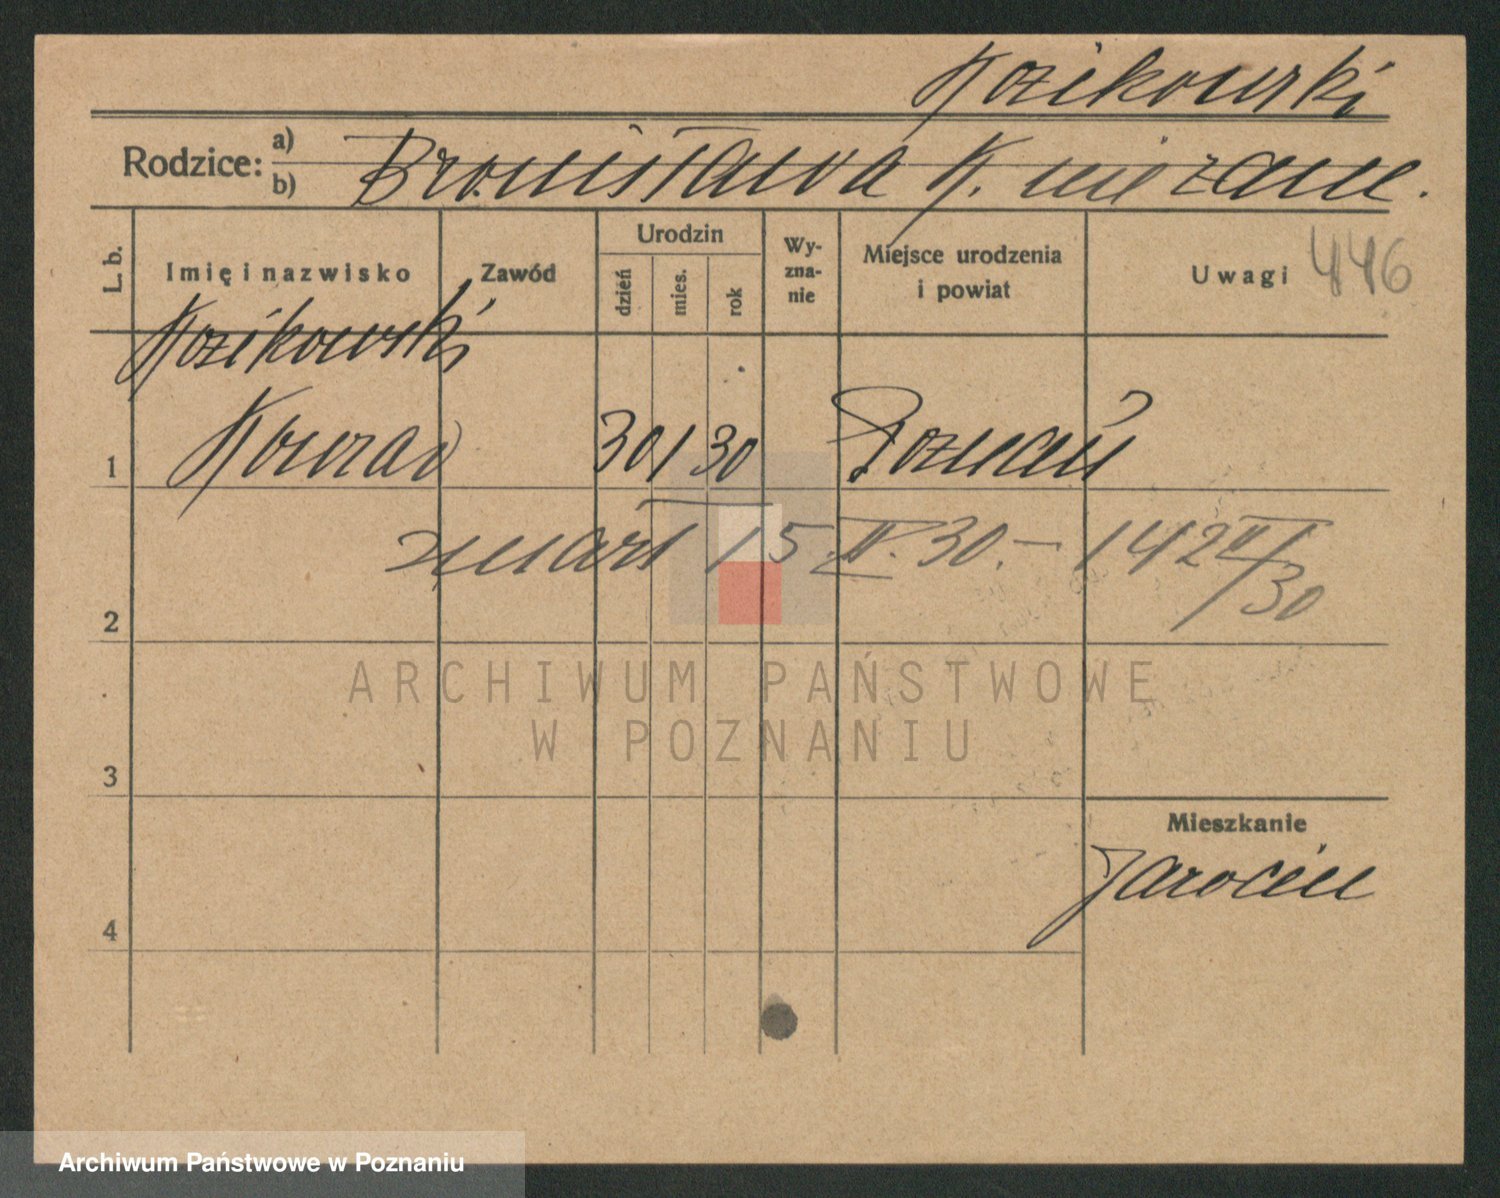 Kozikowski
Rodzice: a)
b) Bronisława K. niezam.
L. b. Imię i nazwisko Zawód Urodzin dzień mies. rok Wy-zna-nie Miejsce urodzenia i powiat Uwagi 446
Kozikowski
1 Konrad 30 1 30 Poznań
zmarł 15.II.30. – 142 II/30
2
ARCHIWUM PAŃSTWOWE
W POZNANIU
3
Mieszkanie
Jarocin
4
Archiwum Państwowe w Poznaniu